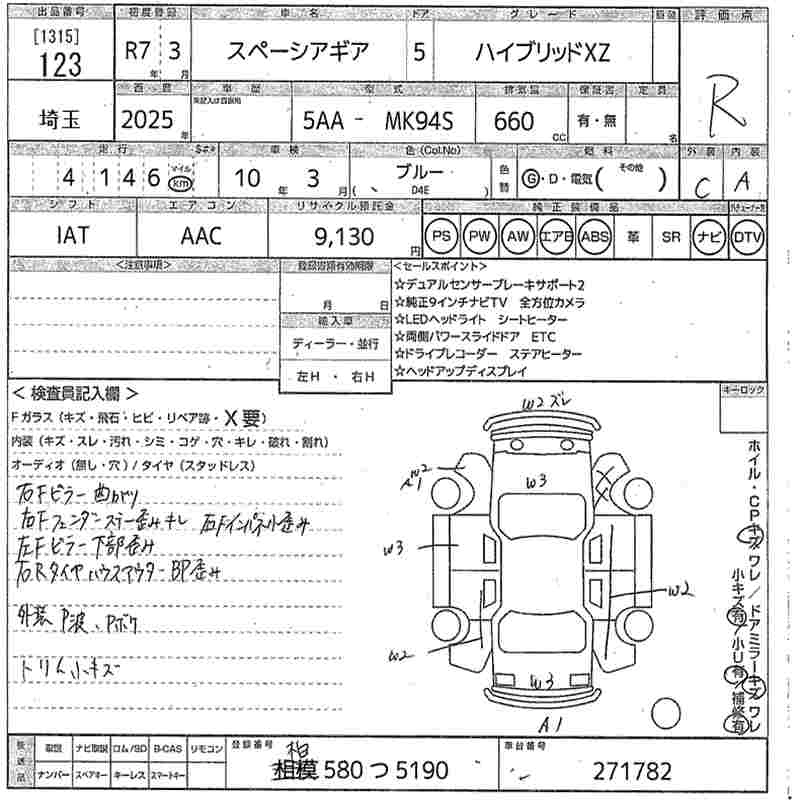 出品番号 初度登録 車名 ドア グレード 評価点
[1315]
123 R7年 3月 スペーシアギア 5 ハイブリッドXZ R
車歴 型式 排気量 保証書 定員
埼玉 2025年 5AA - MK94S 660 cc 有・無 名
走行 車検 色(Col.No) 燃料 外装 内装
4 1 4 6 マイル km 10年 3月 ブルー ( D4E ) 色替 G・D・電気( その他 ) C A
シフト エアコン リサイクル預託金 純正装備品
IAT AAC 9,130円 PS PW AW エアB ABS 革 SR ナビ DTV
<注意事項> 登録書類有効期限 <セールスポイント>
月 日
輸入車
ディーラー・並行
左H ・ 右H
☆デュアルセンサーブレーキサポート2
☆純正9インチナビTV 全方位カメラ
☆LEDヘッドライト シートヒーター
☆両側パワースライドドア ETC
☆ドライブレコーダー ステアヒーター
☆ヘッドアップディスプレイ
キーロック
< 検査員記入欄 >
Fガラス (キズ・飛石・ヒビ・リペア跡・X要)
内装 (キズ・スレ・汚れ・シミ・コゲ・穴・キレ・破れ・割れ)
オーディオ (無し・穴) / タイヤ (スタッドレス)
右Fピラー曲がり
右Fフェンダーステー歪みキレ 右Fインパネ小歪み
左Fピラー下部歪み
右Rタイヤハウスアウター BP歪み
外装 P波、Pボケ
トリム小キズ
W2 ズレ
W2
A1
W3
W3
W2
W2
W3
A1
ホイル CPキズ ワレ / ドアミラーキズ ワレ
小キズ有 / 小U有 / 補修有
後送品 取説 ナビ取説 ロム/SD B-CAS リモコン 登録番号 車台番号
ナンバー スペアキー キーレス スマートキー
相
相模 580 つ 5190 271782